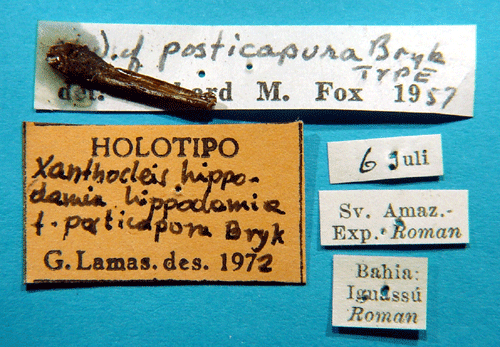 f. posticapura Bryk
TYPE
det. Richard M. Fox 1957
HOLOTIPO
Xanthocleis hippo-
damia hippodamia
f. posticapura Bryk
G. Lamas. des. 1972
6 Juli
Sv. Amaz.-
Exp. Roman
Bahia:
Iguassú
Roman